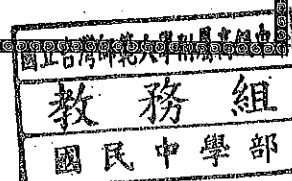 國立台灣師範大學附屬高級中
教務組
國民中學部